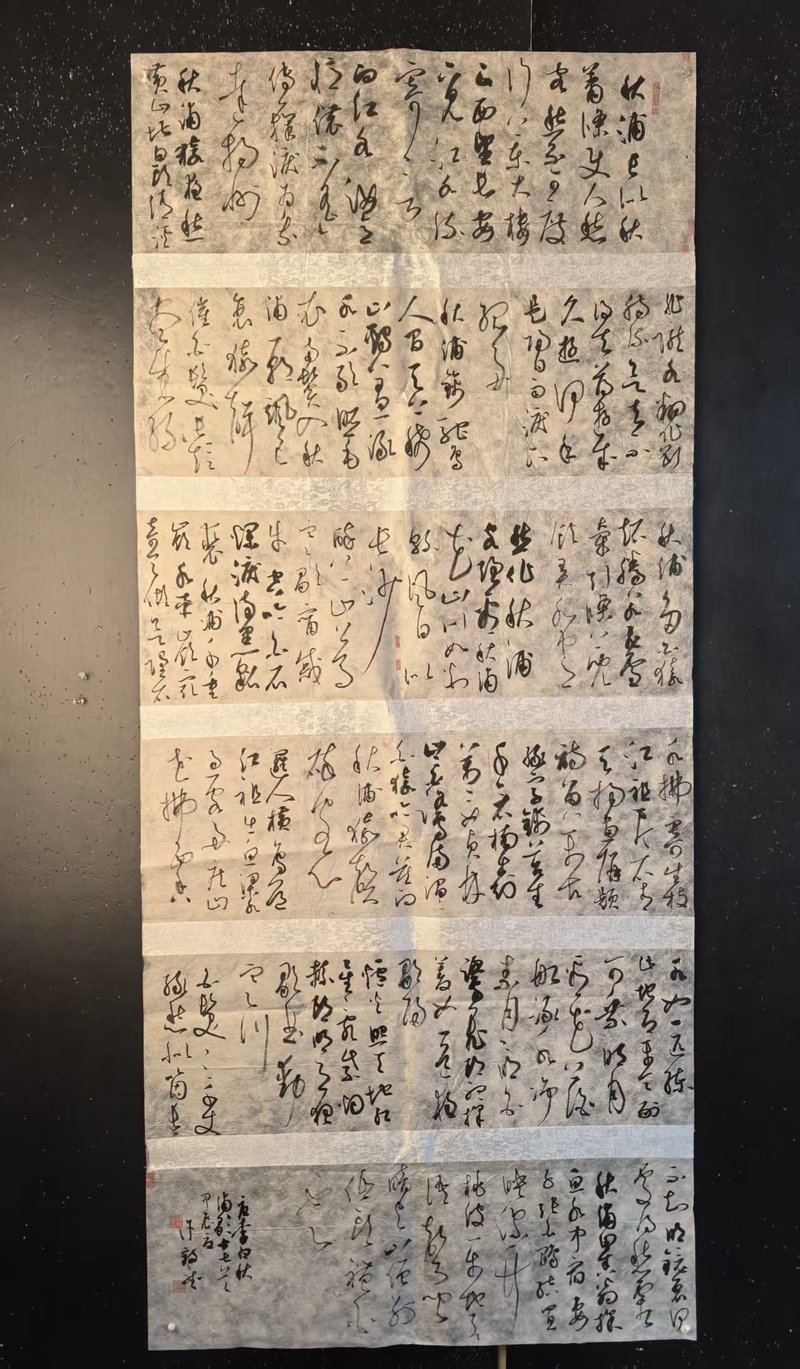 秋浦長似秋
蕭條使人愁
客愁不可度
行上東大樓
正西望長安
下見江水流
寄言
向江水汝意
憶儂不遙
傳一掬淚為我
達揚州
秋浦猿夜愁
黃山堪白頭清溪
非隴水翻作斷
腸流欲去不
得去薄遊成
久遊何年
是歸日雨淚下
孤舟
秋浦錦駝鳥
人間天上稀
山雞羞淥
水不敢照毛
衣兩鬢入秋
浦一朝颯已
衰猿聲
催白髮長短
盡成絲
秋浦多白猿
超騰若飛雪
牽引條上兒
飲弄水中月
愁作秋浦
客強看秋浦
花山川如剡
縣風日似
長沙
醉上山公馬
寒歌甯戚
牛空吟白石
爛淚滿黑貂
裘秋浦千重
嶺水車嶺最
奇天傾欲墮石
水拂寄生枝
江祖一片石青
天掃畫屏題
詩留萬古
綠字錦苔生
千千石楠樹
萬萬女貞林
山山白鷺滿澗澗
白猿吟君莫向
秋浦猿聲
碎客心
邏人橫鳥道
江祖出魚梁水
急客舟疾山
花拂面香
水如一匹練
此地即平天耐
可乘明月
看花上酒
船淥水淨
素月月明白
鷺飛郎聽採
菱女一道夜
歌歸
爐火照天地紅
星亂紫煙
赧郎明月夜
歌曲動
寒川
白髮三千丈
緣愁似箇長
不知明鏡裏何
處得秋霜
秋浦田舍翁採
魚水中宿妻
子張白鷴結罝
映深竹
桃波一步地了了
語聲聞
闇與山僧別
低頭禮白
雲
唐李白秋
浦歌十七首
甲辰夏